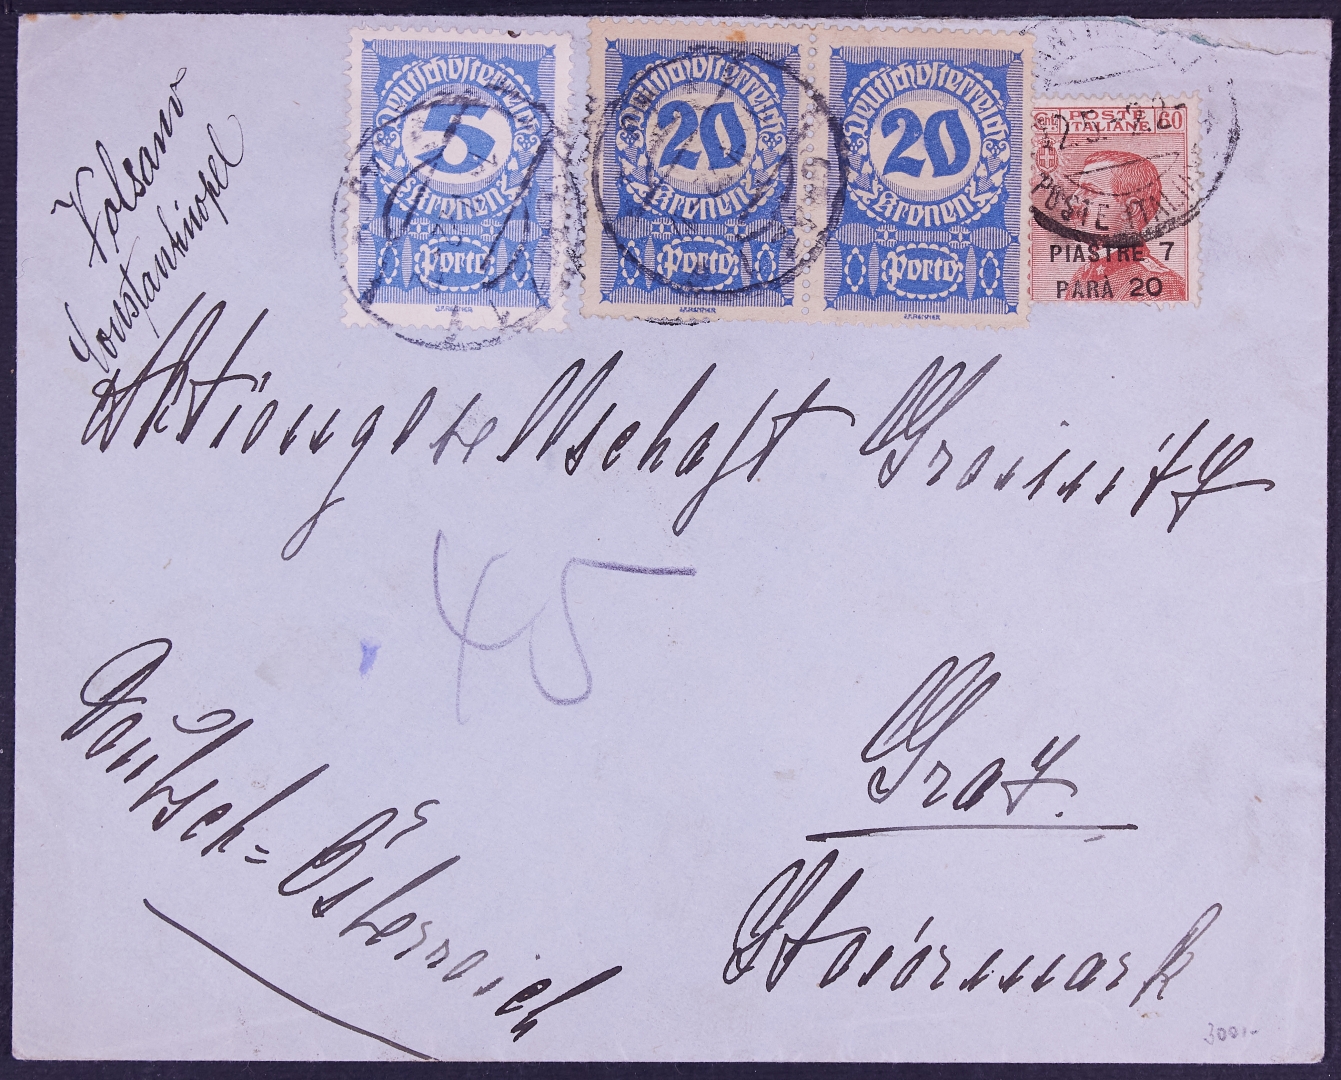 Deutschösterreich
5
Kronen
Porto
Deutschösterreich
20
Kronen
Porto
Deutschösterreich
20
Kronen
Porto
POSTE 60
ITALIANE
POSTE ITAL
PIASTRE 7
PARA 20
Constantinopel
Aktiengesellschaft Greinitz
45
Graz.
Steiermark
Deutsch=Österreich